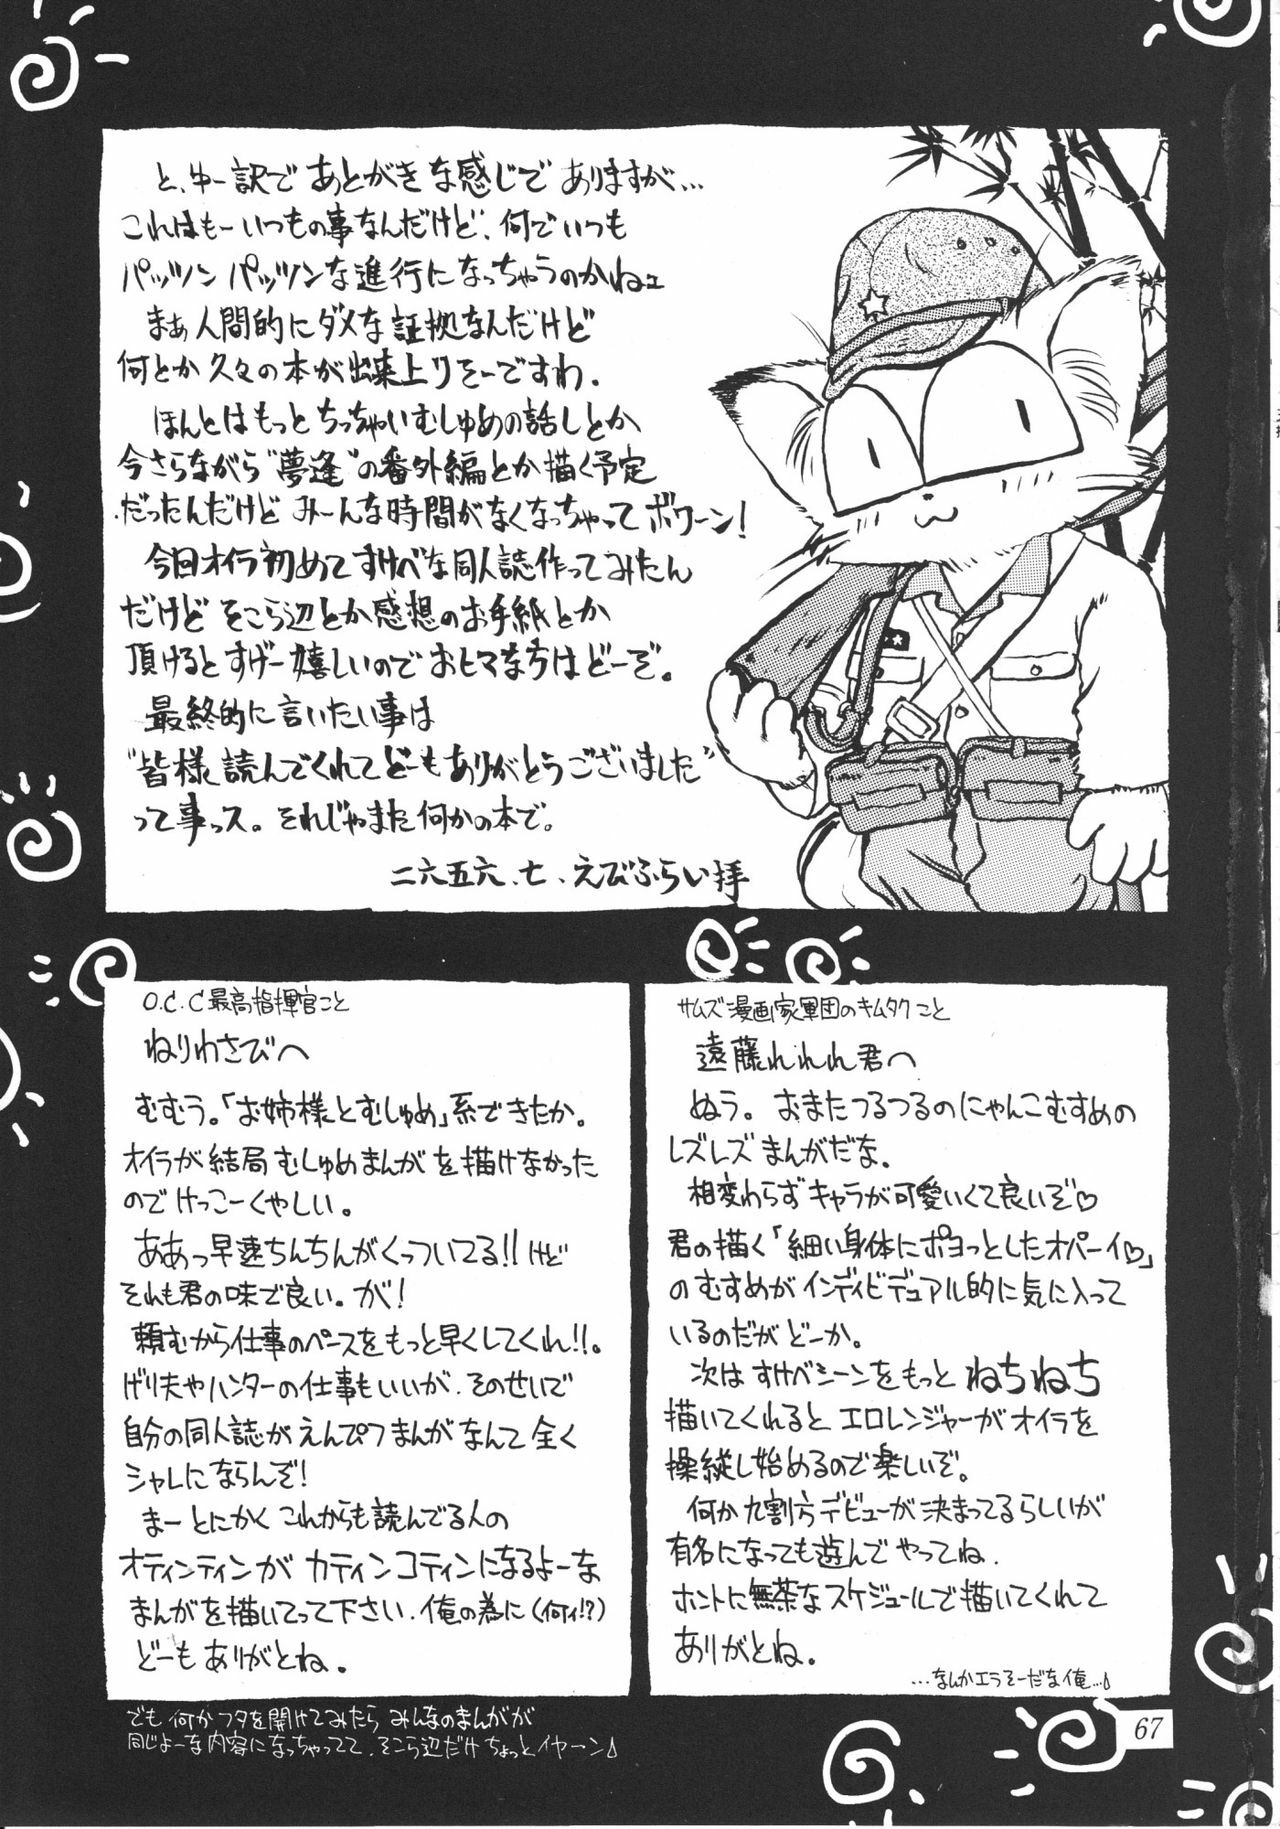 と、ゆー訳で あとがきな感じで ありますが…
これはもーいつもの事なんだけど、何でいつも
パッツン パッツンな進行になっちゃうのかねェ
まぁ人間的にダメな証拠なんだけど
何とか久々の本が出来上りそーですわ。
ほんとはもっとちっちゃいむしゅめの話しとか
今さらながら“夢逢”の番外編とか描く予定
だったんだけど み〜んな時間がなくなっちゃってボワーン!
今回オイラ初めてすけべな同人誌作ってみたん
だけど そこら辺とか感想のお手紙とか
頂けるとすげー嬉しいのでおヒマな方はどーぞ。
最終的に言いたい事は
“皆様、読んでくれてどーもありがとうございました”
って事っス。それじゃまた何かの本で。
二六五六、七、えびふらい拝
O.C.C最高指揮官こと
ねりわさびへ
むむう。「お姉様とむしゅめ」系できたか。
オイラが結局むしゅめまんがを描けなかった
のでけっこーくやしい。
ああっ早速ちんちんがくっついてる!!けど
それも君の味で良い。が!
頼むから仕事のペースをもっと早くしてくれ!!。
げり夫やハンターの仕事もいいが、そのせいで
自分の同人誌がえんぴつまんがなんて全く
シャレにならんぞ!
まーとにかくこれからも読んでる人の
オティンティンがカティンコティンになるよーな
まんがを描いてって下さい。俺の為に(何ィ!?)
どーもありがとね。
サムズ漫画家軍団のキムタクこと
遠藤れれれ君へ
ぬう。おまたつるつるのにゃんこむすめの
レズレズまんがだな。
相変わらずキャラが可愛いくて良いぞ♡
君の描く「細い身体にポヨっとしたオパーイ♡」
のむすめがインディビデュアル的に気に入って
いるのだがどーか。
次はすけべシーンをもっとねちねち
描いてくれるとエロレンジャーがオイラを
操縦し始めるので楽しいぞ。
何か九割方デビューが決まってるらしいが
有名になっても遊んでやってね。
ホントに無茶なスケジュールで描いてくれて
ありがとね。
…なんかエラそーだな俺…♪
でも何かフタを開けてみたらみんなのまんがが
同じよーな内容になっちゃってて、そこら辺だけちょっとイヤーン♪
67